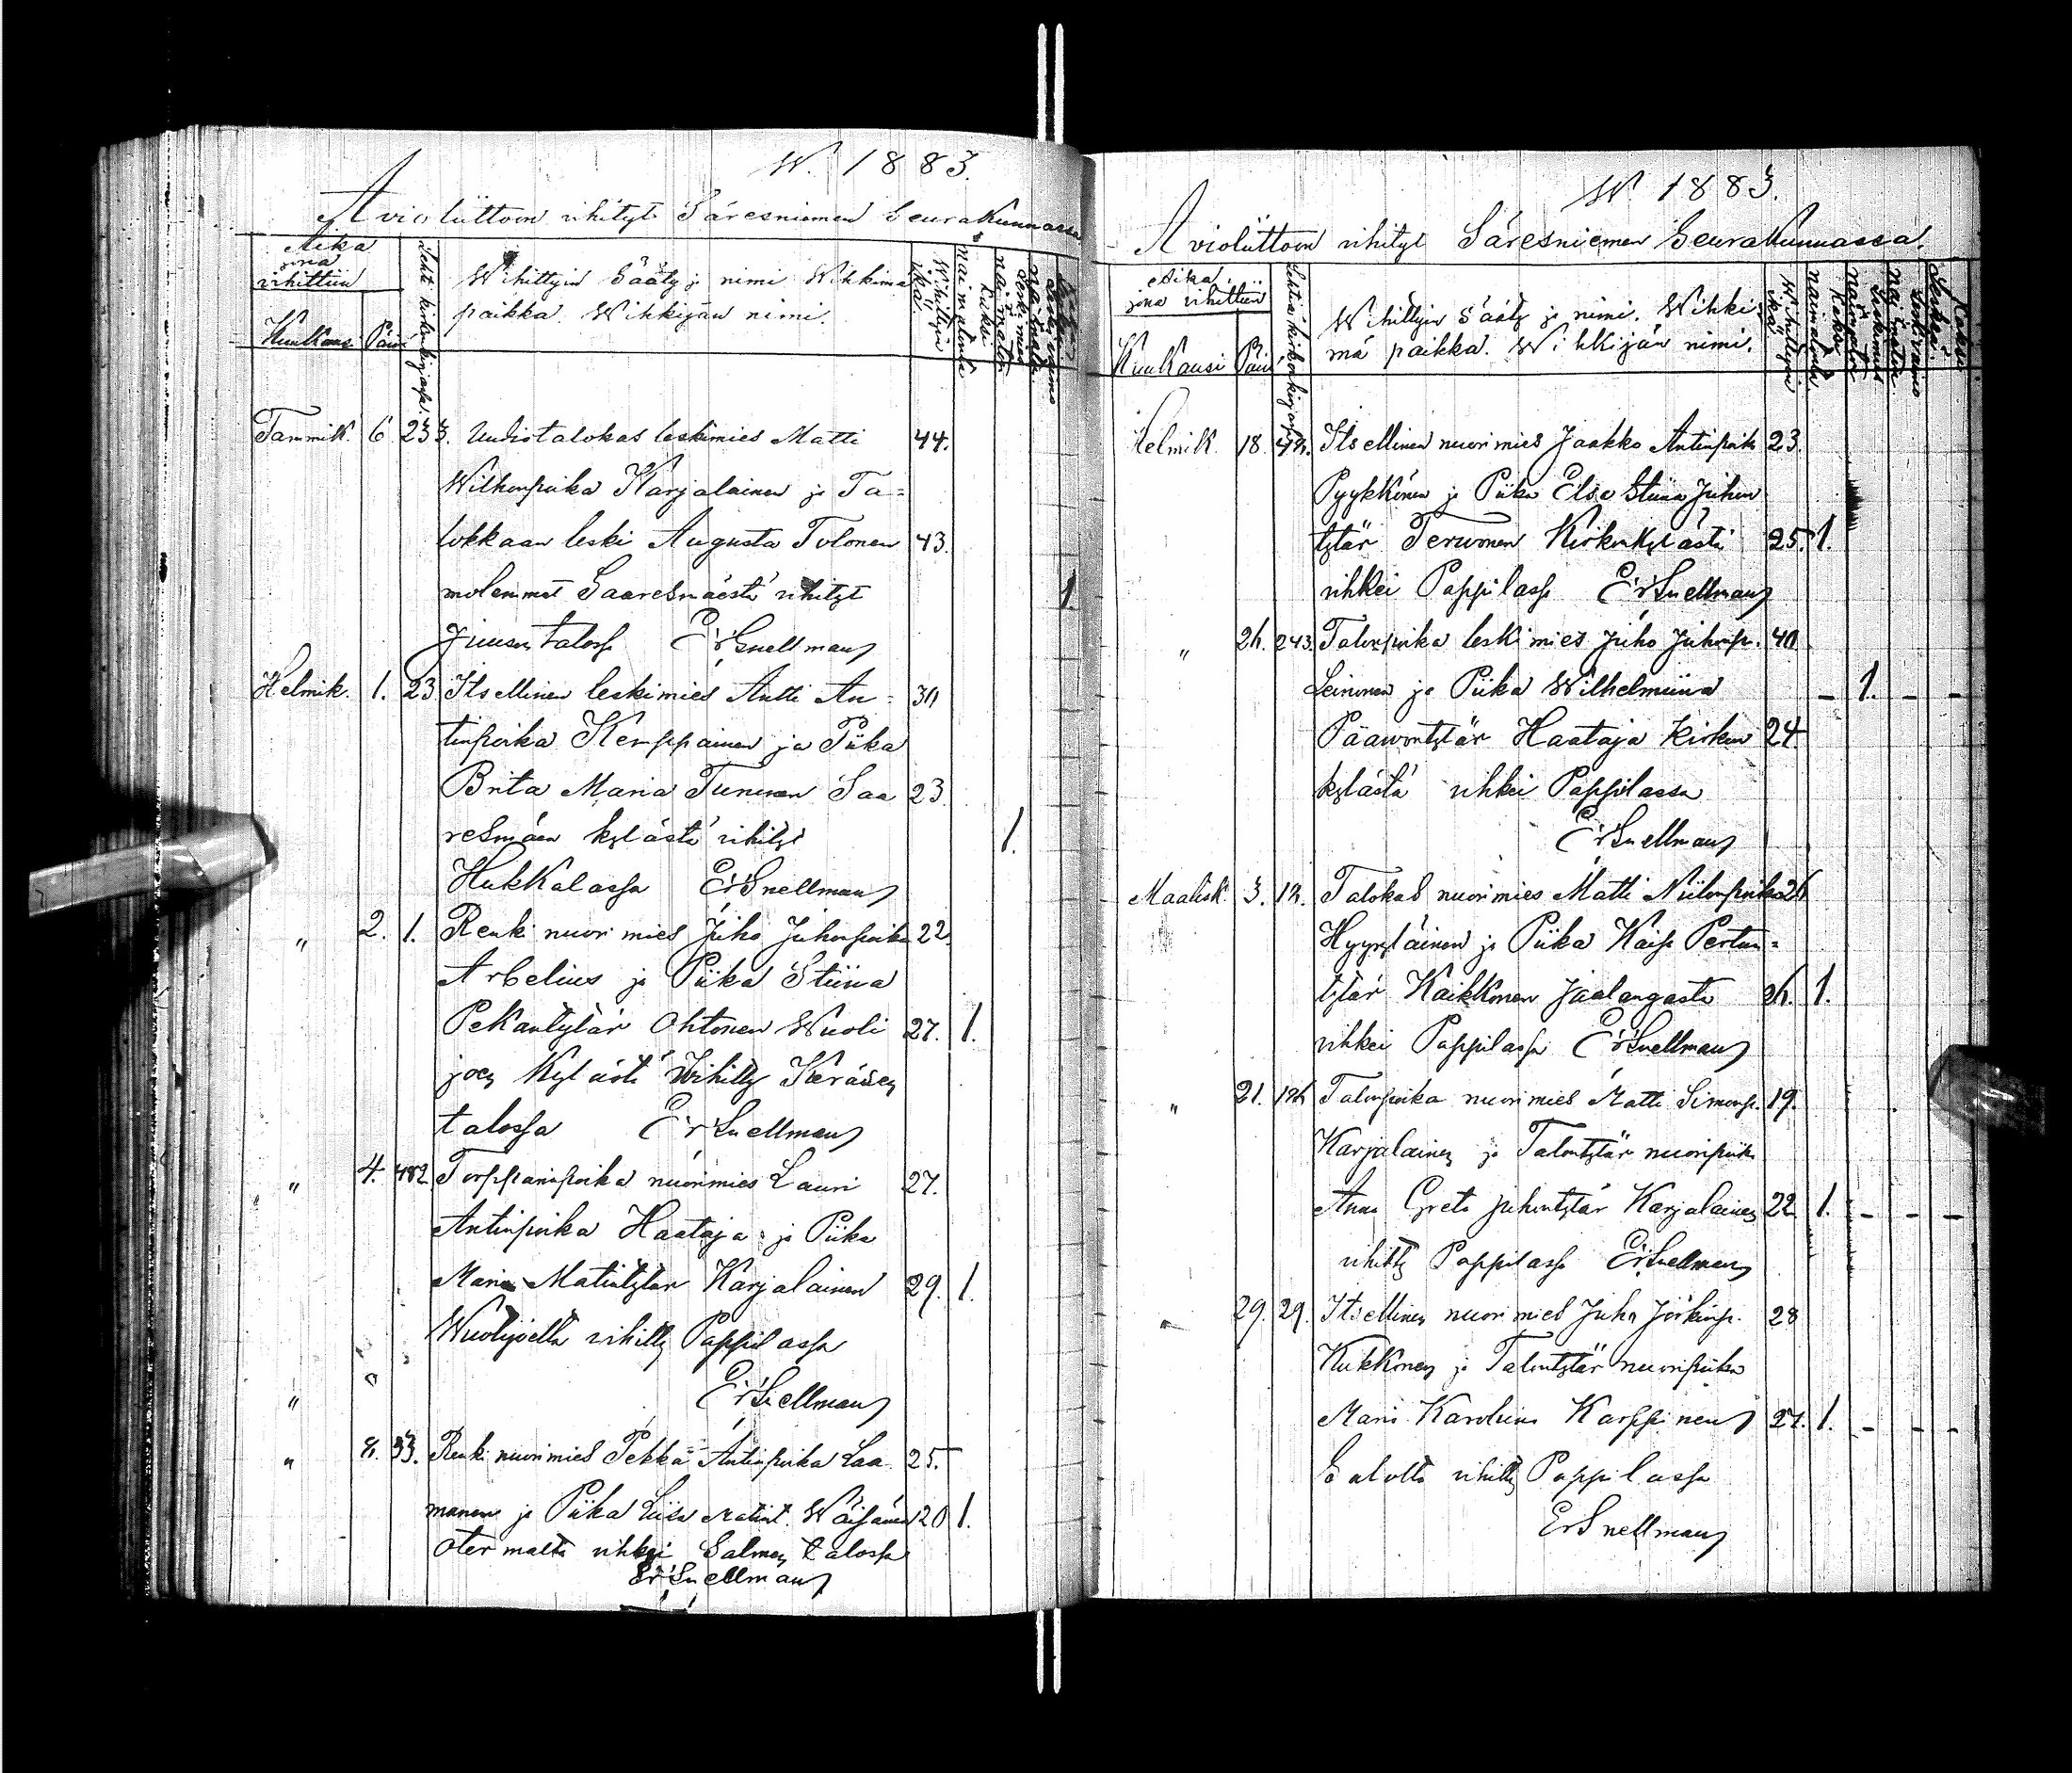 W. 1883.
Avioliittoon vihityt Säresniemen Seurakunnassa
Aika jona vihittiin
Kuukausi Päivä
Wihittyin Sääty ja nimi Wihkimä
paikka. Wihkijän nimi.
Wihittyin ikä.
Tammik. 6. 233. Uudistalokas leskimies Matti 44.
Wilhonpoika Karjalainen ja Ta=
lokkaan leski Augusta Tolonen 43.
molemmat Saaresmäestä vihityt 1.
Juuson talossa Er Snellman
Helmik. 1. 23 Itsellinen leskimies Antti An=
tinpoika Kemppainen ja Piika
Brita Maria Turunen Saa 23.
resmäen kylästä vihityt 1.
Hukkalassa Er Snellman
" 2. 1. Renki nuori mies Juho Juhonpoika 22
Arbelius ja Piika Stiina
Pekantytär Ohtonen Wuoli 27. 1.
joen Kylästä Wihitty Keräsen
talossa Er Snellman
" 4. 482. Torpparinpoika nuorimies Lauri 27.
Antinpoika Haataja ja Piika
Maria Matintytär Karjalainen 29. 1.
Wuolijoelta vihitty Pappilassa
" Er Snellman
" 8. 33. Renki nuorimies Pekka Antinpoika Laa 25.
manen ja Piika Liisa Matint. Wäisänen 20 1.
Otermalta vihkei Salmen talossa
Er Snellman
W. 1883.
Avioliittoon vihityt Säresniemen Seurakunnassa.
Aika jona vihittiin
Kuukausi Päivä
Wihittyin Sääty ja nimi. Wihki
mä paikka. Wihkijän nimi.
Wihittyin ikä.
Helmik. 18. Itsellinen nuorimies Jaakko Antinpoik 23.
Pyykkönen ja Piika Elsa Stiina Juhon
tytär Tervonen Kirkonkylästä 25. 1.
vihkei Pappilassa Er Snellman
" 243. Talonpoika leskimies Juho Juhonp. 40
Leinonen ja Piika Wilhelmiina - 1. - -
Paawontytär Haataja Kirkon 24.
kylästä vihkei Pappilassa
Er Snellman
Maalisk. 3. Talokas nuorimies Matti Niilonpoika
Hyyryläinen ja Piika Kaisa Pertun=
tytär Kaikkonen Jaalangasta 1.
vihkei Pappilassa Er Snellman
" 21. Talonpoika nuorimies Matti Simonp. 19.
Karjalainen ja Talontytär nuoripiika
Anna Greta Juhontytär Karjalainen 22 1. - - -
vihitty Pappilassa Er Snellman
" 29. 29. Itsellinen nuorimies Juho Jörkinp. 28
Kukkonen ja Talontytär nuoripiika
Maria Karolina Karppinen 27. 1. - - -
vihitty Pappilassa
Er Snellman